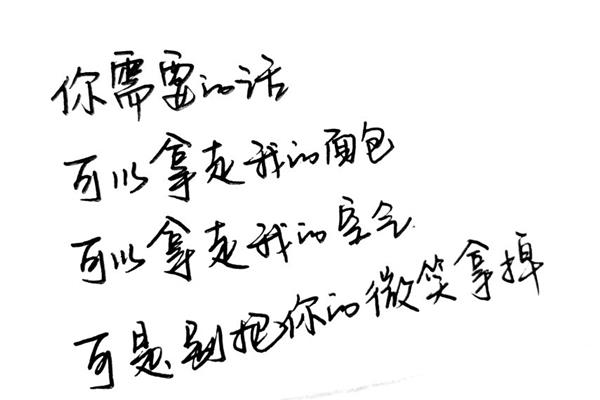 你需要的话
可以拿走我的面包
可以拿走我的空气
可是别把你的微笑拿掉